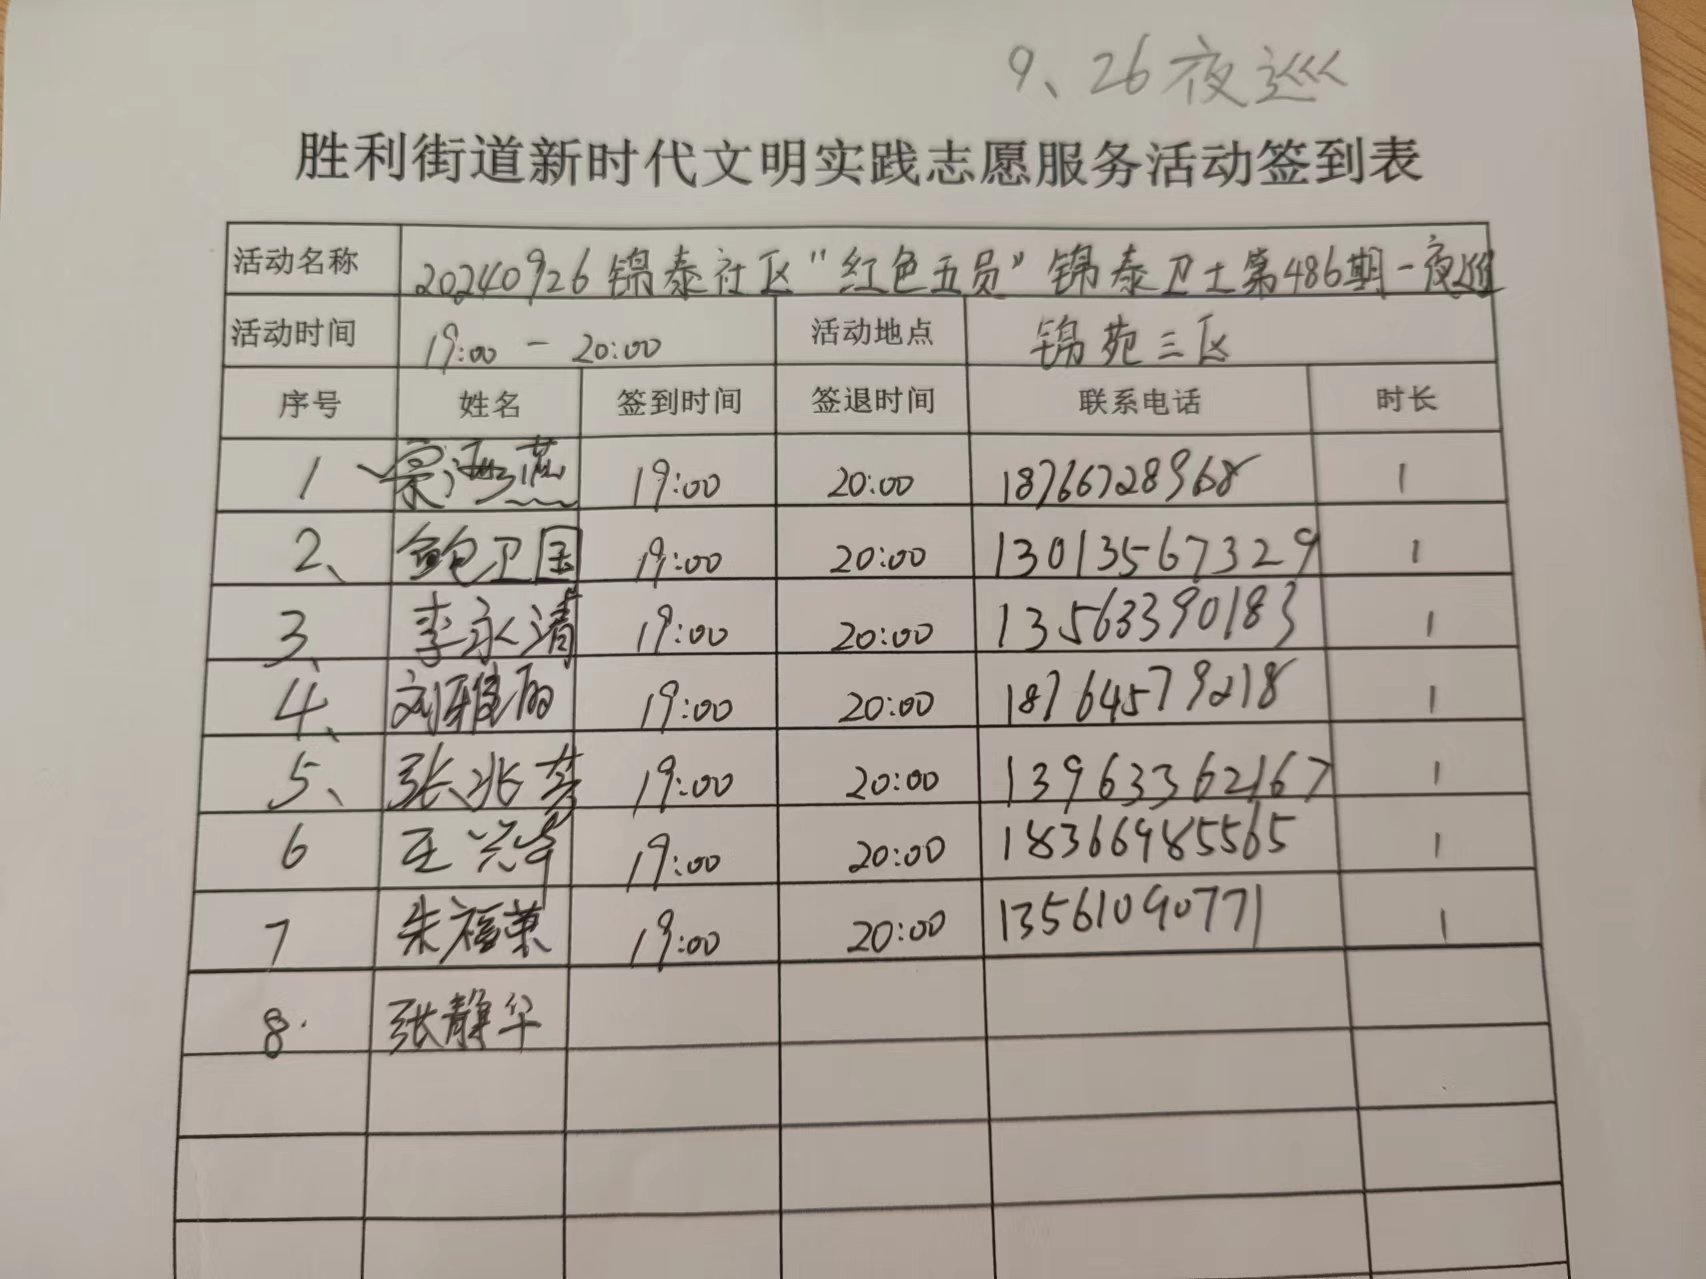 9、26夜巡
胜利街道新时代文明实践志愿服务活动签到表
活动名称 20240926锦泰社区“红色五员”锦泰卫士第486期-夜巡
活动时间 19:00-20:00 活动地点 锦苑三区
序号 姓名 签到时间 签退时间 联系电话 时长
1、 燕 19:00 20:00 18766728968 1
2、 鲍卫国 19:00 20:00 13013567329 1
3、 李永清 19:00 20:00 13563390183 1
4、 刘雅丽 19:00 20:00 18764579218 1
5、 张兆芬 19:00 20:00 13963362167 1
6 王兴华 19:00 20:00 18366985565 1
7 朱福荣 19:00 20:00 13561090771 1
8. 张静华